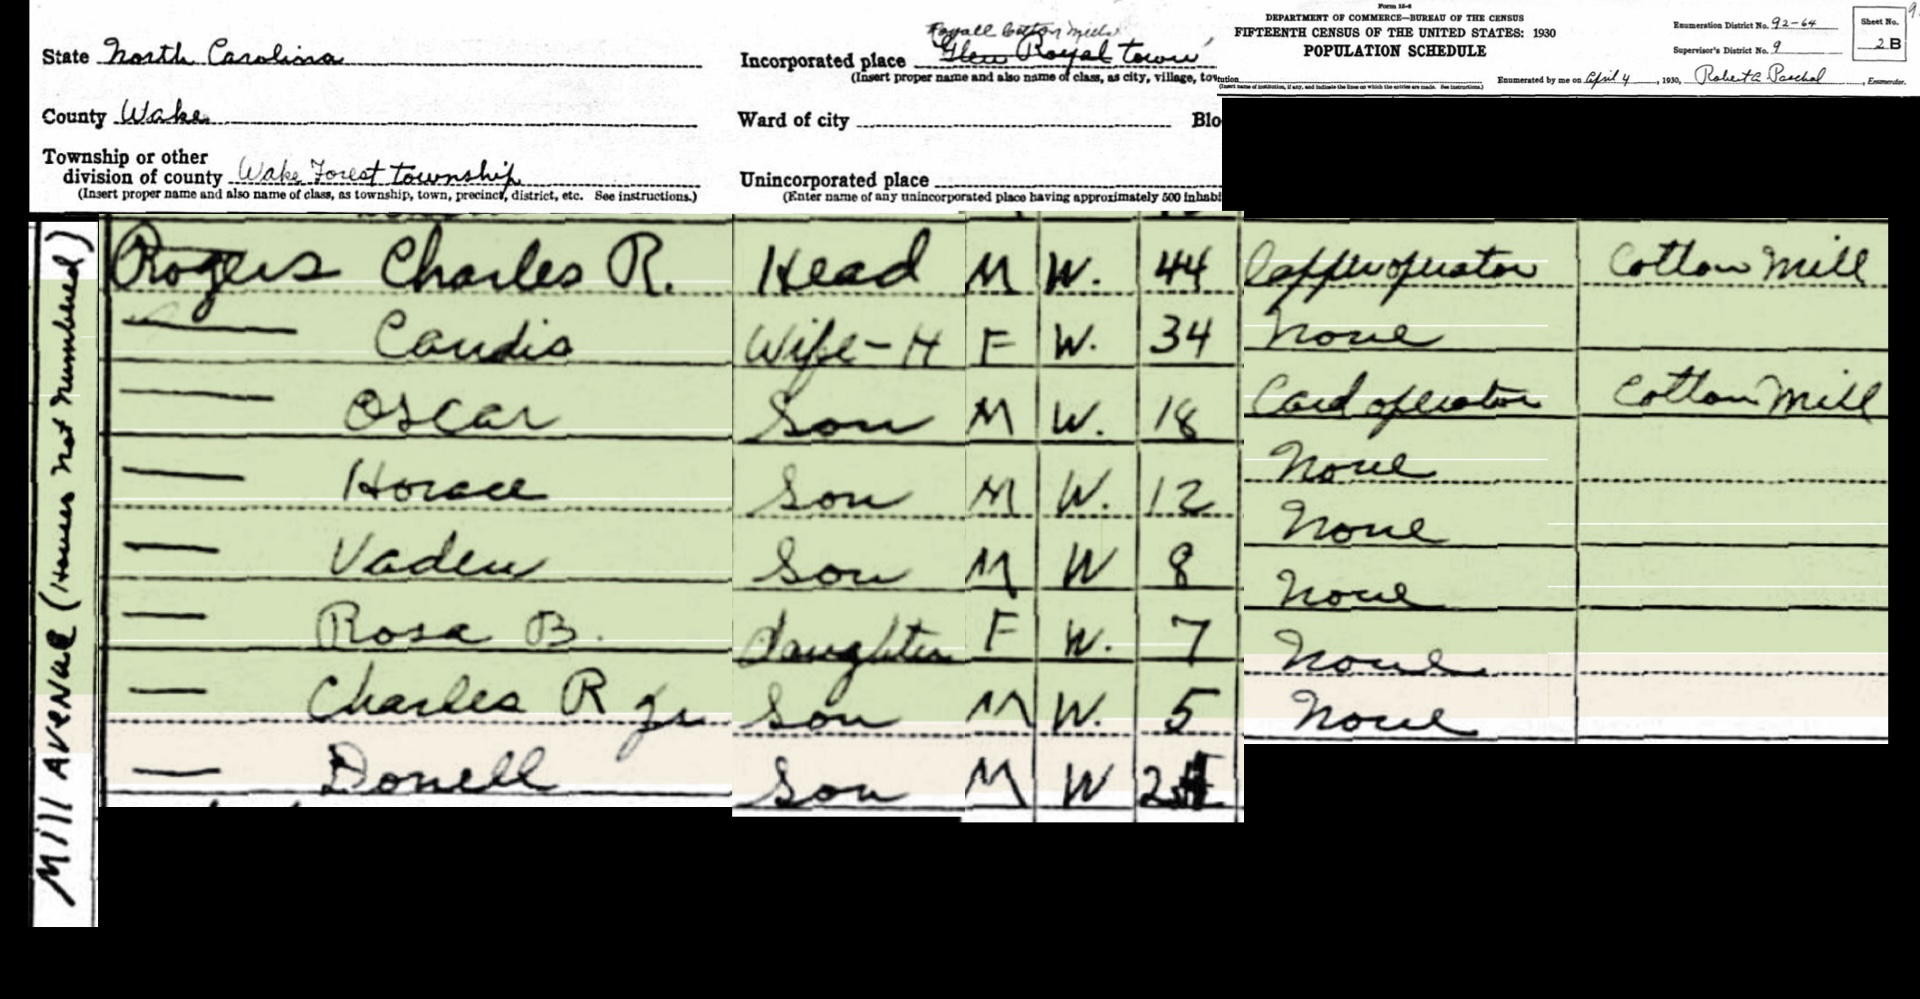 Form 15-6
DEPARTMENT OF COMMERCE—BUREAU OF THE CENSUS
FIFTEENTH CENSUS OF THE UNITED STATES: 1930
POPULATION SCHEDULE
Enumeration District No. 92-64
Supervisor's District No. 9
Sheet No.
2 B
Enumerated by me on April 4, 1930, Robert C. Paschal, Enumerator.
(Insert name of institution, if any, and indicate the lines on which the entries are made. See instructions.)
State North Carolina
County Wake
Township or other
division of county Wake Forest township
(Insert proper name and also name of class, as township, town, precinct, district, etc. See instructions.)
Royall Cotton Mills
Incorporated place Glen Royal town
(Insert proper name and also name of class, as city, village, tow
Ward of city Blo
Unincorporated place
(Enter name of any unincorporated place having approximately 500 inhabi
Mill Avenue (Houses not numbered)
Rogers Charles R. Head M W. 44 operator Cotton Mill
— Candis Wife-H F W. 34 None
— Oscar Son M W. 18 Card operator Cotton Mill
— Horace Son M W. 12 None
— Vaden Son M W 8 None
— Rosa B. daughter F W. 7 None
— Charles R Jr Son M W. 5 None
— Donell Son M W 2 None